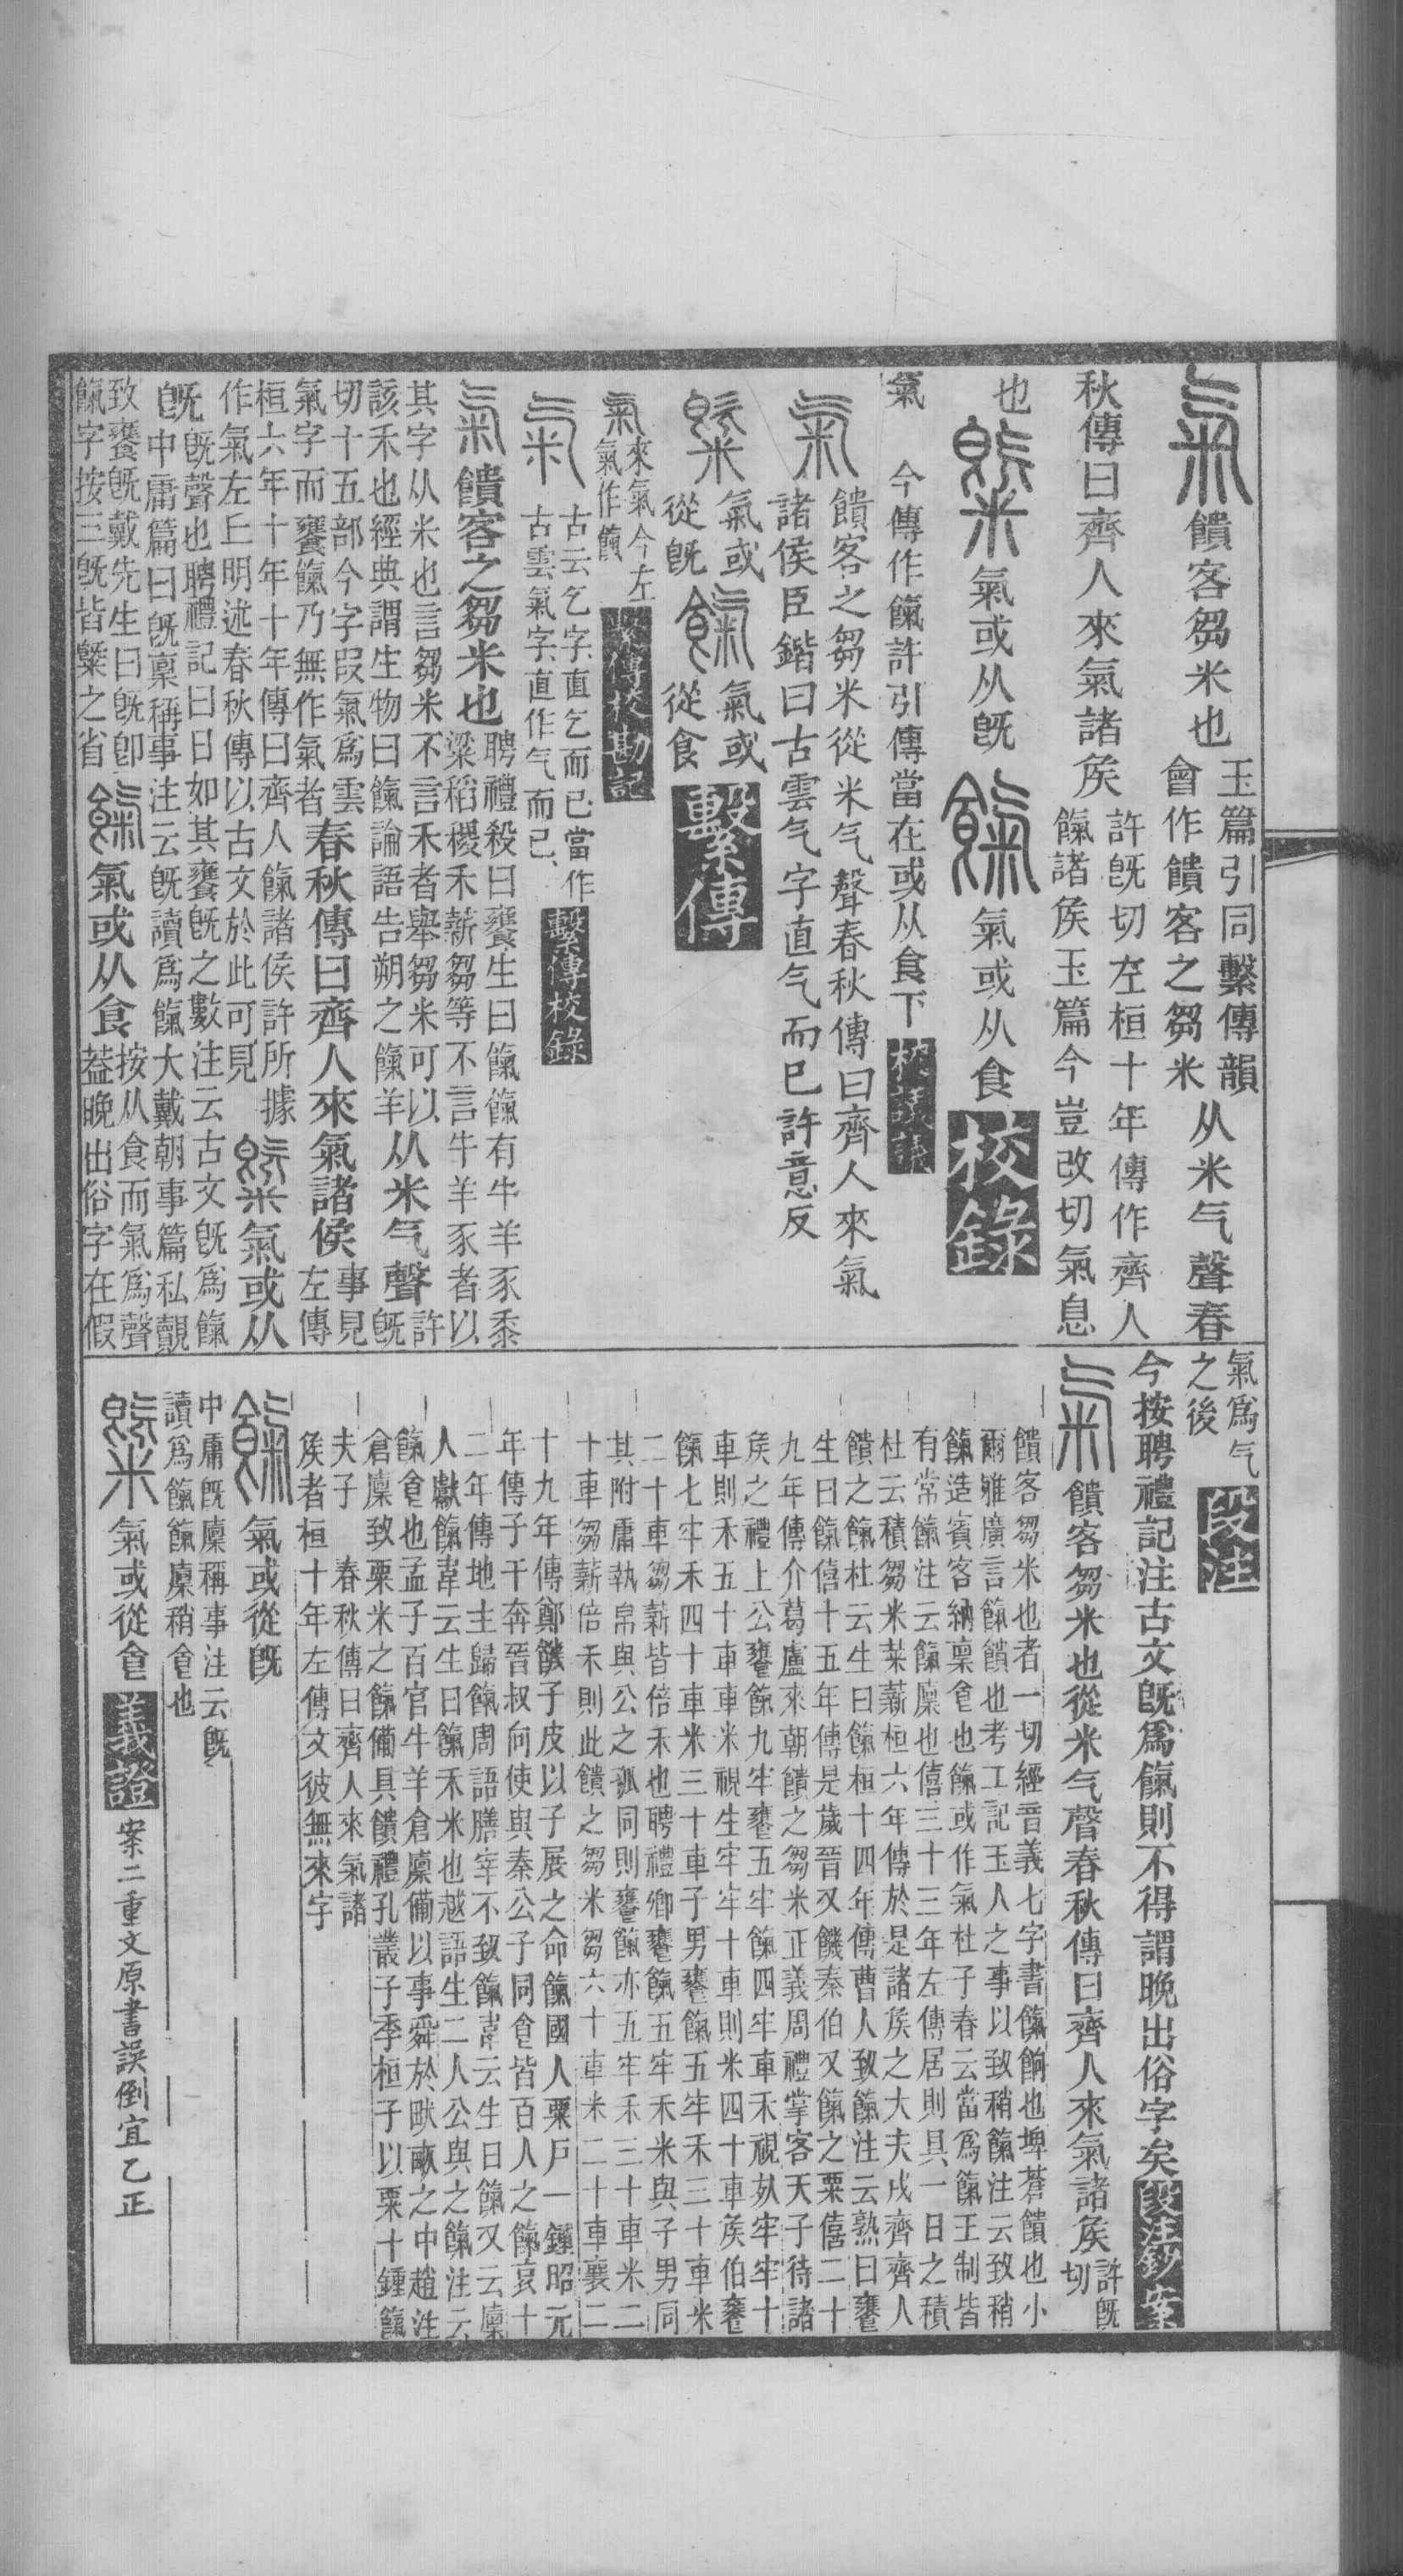 氣饋客芻米也玉篇引同繫傳韻
會作饋客之芻米从米气聲春
秋傳曰齊人來氣諸矦許旣切左桓十年傳作齊人
餼諸矦玉篇今豈改切氣息
也𣫍氣或从旣餼氣或从食校錄
氣 今傳作餼許引傳當在或从食下校議議
氣饋客之芻米從米气聲春秋傳曰齊人來氣
諸侯臣鍇曰古雲气字直气而巳許意反
𣫍氣或從旣餼氣或從食繫傳
氣來氣今左
氣作餼繫傳校勘記
氣古云乞字直乞而已當作
古雲氣字直作气而已繫傳校錄
氣饋客之芻米也聘禮殺曰饔生曰餼餼有牛羊豕黍
粱稻稷禾薪芻等不言牛羊豕者以
其字从米也言芻米不言禾者舉芻米可以
該禾也經典謂生物曰餼論語告朔之餼羊从米气聲許旣
切十五部今字叚氣爲雲
氣字而饔餼乃無作氣者春秋傳曰齊人來氣諸侯事見左傳
桓六年十年十年傳曰齊人餼諸侯許所據
作氣左丘明述春秋傳以古文於此可見𣫍氣或从
旣旣聲也聘禮記曰日如其饔旣之數注云古文旣爲餼
中庸篇曰旣稟稱事注云旣讀爲餼大戴朝事篇私覿
致饔旣戴先生曰旣卽
餼字按三旣皆𣫍之省餼氣或从食按从食而氣爲聲
葢晚出俗字在假
氣爲气
之後段注
今按聘禮記注古文旣爲餼則不得謂晚出俗字矣段注鈔案
氣饋客芻米也從米气聲春秋傳曰齊人來氣諸矦許旣切
饋客芻米也者一切經音義七字書餼餉也埤蒼饋也小
爾雅廣言餼饋也考工記玉人之事以致稍餼注云致稍
餼造賓客納稟食也餼或作氣杜子春云當爲餼王制皆
有常餼注云餼廩也僖三十三年左傳居則具一日之積
杜云積芻米菜薪桓六年傳於是諸矦之大夫戍齊齊人
饋之餼杜云生曰餼桓十四年傳曹人致餼注云熟曰饔
生曰餼僖十五年傳是歲晉又饑秦伯又餼之粟僖二十
九年傳介葛盧來朝饋之芻米正義周禮掌客天子待諸
矦之禮上公饔餼九牢饔五牢餼四牢車禾視死牢牢十
車則禾五十車車米視生牢牢十車則米四十車矦伯饔
餼七牢禾四十車米三十車子男饔餼五牢禾三十車米
二十車芻薪皆倍禾也聘禮卿饔餼五牢禾米與子男同
其附庸執帛與公之孤同則饔餼亦五牢禾三十車米二
十車芻薪倍禾則此饋之芻米芻六十車米二十車襄二
十九年傳鄭饑子皮以子展之命餼國人粟戶一鍾昭元
年傳子干奔晉叔向使與秦公子同食皆百人之餼哀十
二年傳地主歸餼周語膳宰不致餼韋云生曰餼又云廩
人獻餼韋云生曰餼禾米也越語生二人公與之餼注云
餼食也孟子百官牛羊倉廩備以事舜於畎畝之中趙注
倉廩致粟米之餼備具饋禮孔叢子季桓子以粟十鍾餼
夫子 春秋傳曰齊人來氣諸
矦者桓十年左傳文彼無來字
餼氣或從旣
中庸旣廩稱事注云旣
讀爲餼餼廩稍食也
𣫍氣或從食義證案二重文原書誤倒宜乙正